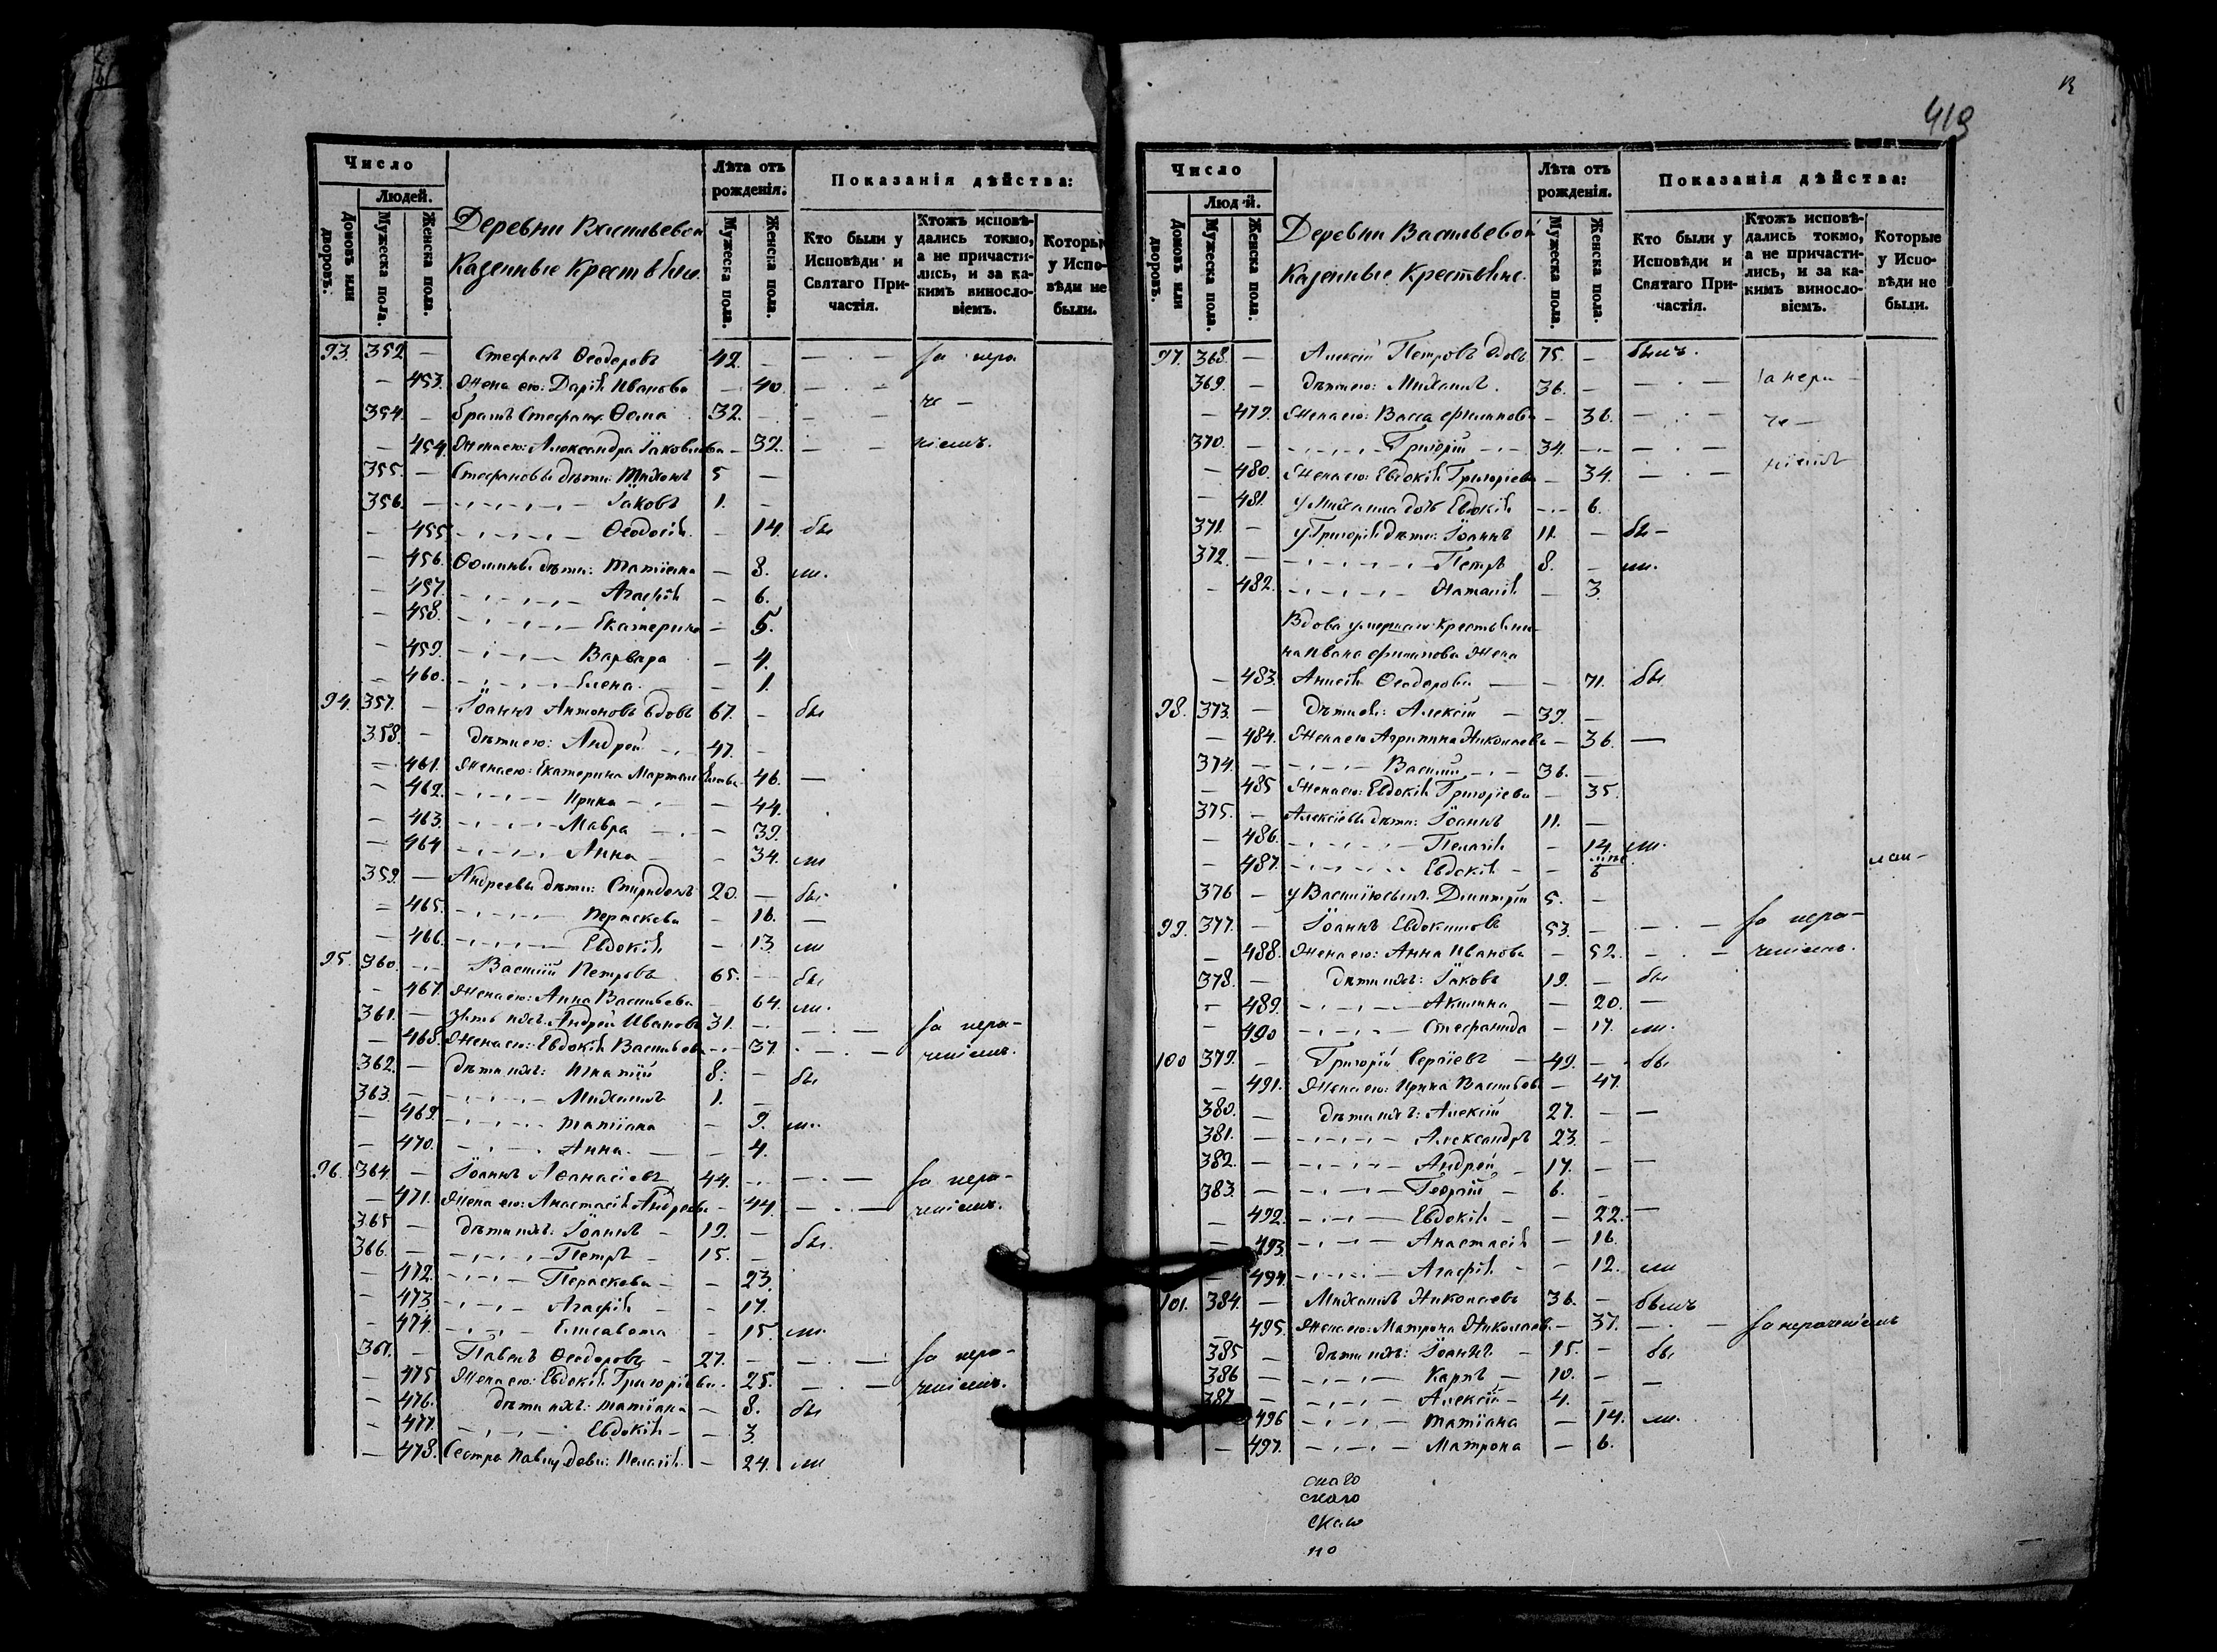 Число
Людей.
Домовъ или дворовъ.
Мужеска пола.
Женска пола.
Деревни Васильевой
Казенные Крестьяне.
Лѣта отъ рожденія.
Мужеска пола.
Женска пола.
Показанія дѣйства:
Кто были у Исповѣди и Святаго Причастія.
Ктожъ исповѣдались токмо, а не причастились, и за какимъ винословіемъ.
Которые у Исповѣди не были.
93. 352 — Стефанъ Ѳеодоровъ 42. — — · — за нера
— 453. Жена его: Дарія Иванова — 40. — · —
354. — братъ Стефана Ѳома 32. — — · — че —
— 454. Жена его: Александра Іаковлева — 32. — · — ніемъ.
355. — Стефановы дѣти: Тихонъ 5 —
356. — Іаковъ 1. —
— 455. Ѳеодосія — 14. бы
— 456. Ѳомины дѣти: Татіана — 8. ли.
— 457. Агафія — 6.
— 458. Екатерина — 5.
— 459. Варвара — 4.
— 460. Елена — 1.
94. 357. — Іоаннъ Антоновъ вдовъ 67. — бы
358. — дѣти его: Андрей 47. —
— 461. Жена его: Екатерина — 46. —
— 462. Ирина — 44.
— 463. Мавра — 39.
— 464 Анна — 34. ли
359. — Андреевы дѣти: Спиридонъ 20. — бы
— 465. Параскева — 16. —
— 466. Евдокія — 13 ли
95. 360. — Василій Петровъ 65. — бы
— 467. Жена его: Анна Васильева — 64. ли.
361. — зять ихъ: Андрей Ивановъ 31. — — · — за нера-
— 468. Жена его: Евдокія Васильева — 37. — · — ченіемъ.
362. — дѣти ихъ: Игнатій 8. — бы
363. — Михаилъ 1. —
— 469. Татіана — 9. ли.
— 470. Анна — 4.
96. 364. — Іоаннъ Аѳанасіевъ 44. — — · — за нера-
— 471. Жена его: Анастасія Андреева — 44. — · — ченіемъ.
365 — дѣти ихъ: Іоаннъ 19. — бы.
366. — Петръ 15. —
— 472. Параскева — 23.
— 473. Агафія — 17.
— 474. Елисавета — 15. ли.
367. — Павелъ Ѳеодоровъ 27. — — · — за нера-
— 475 Жена его: Евдокія Григоріева — 25. — · — ченіемъ.
— 476. дѣти ихъ: Татіана — 8. бы
— 477. Евдокія — 3.
— 478. Сестра Павлу Пелагія — 24. ли
419
Число
Людей.
Домовъ или дворовъ.
Мужеска пола.
Женска пола.
Деревни Васильевой
Казенные Крестьяне.
Лѣта отъ рожденія.
Мужеска пола.
Женска пола.
Показанія дѣйства:
Кто были у Исповѣди и Святаго Причастія.
Ктожъ исповѣдались токмо, а не причастились, и за какимъ винословіемъ.
Которые у Исповѣди не были.
97. 368. — Алексій Петровъ вдовъ 75. — былъ.
369. — дѣти его: Михаилъ 36. — — · — за нера —
— 479. Жена его: Васса Филипова — 36. — · — че —
370. — Григорій 34. — — · —
— 480. Жена его: Евдокія Григоріева — 34. — · — ніемъ
— 481. у Михаила дочь Евдокія — 6.
371. — у Григорія дѣти: Іоаннъ 11. — бы —
372. — Петръ 8. — ли.
— 482. Наталія — 3.
Вдова умершаго крестьяни-
на Ивана Филипова Жена
— 483. Анисія Ѳеодорова — 71. бы
98. 373. — дѣти ея: Алексій 39. —
— 484. Жена его Агрипина Николаева — 36. —
374. — Василій 36. —
— 485 Жена его: Евдокія Григоріева — 35.
375. — Алексіевы дѣти: Іоаннъ 11. —
— 486. Пелагія — 14. ли.
— 487. Евдокія — 6
376 — у Василія сынъ Димитрій 5. —
99. 377. — Іоаннъ Евдокимовъ 53. — — · — за нера —
— 488. Жена его: Анна Иванова — 52. — · — ченіемъ.
378. — дѣти ихъ: Іаковъ 19. — бы
— 489. Акилина — 20. —
— 490 Стефанида — 17. ли.
100 379. — Григорій Сергіевъ 49. — бы
— 491. Жена его: Ирина Васильева — 47.
380. — дѣти ихъ: Алексій 27. — —
381. — Александръ 23. —
382. — Андрей 17. — —
383. — Георгій 6. —
— 492. Евдокія — 22. —
— 493. Анастасія — 16.
— 494. Агафія — 12. ли
101. 384. — Михаилъ Николаевъ 36. — былъ
— 495. Жена его: Матрона Николаева — 37. — · — за нераченіемъ
385 — дѣти ихъ: Іоаннъ 15. — бы
386 — Карпъ 10. — —
387 — Алексій 4. —
— 496 Татіана — 14. ли.
— 497. Матрона — 6.
скаго
скаго
но